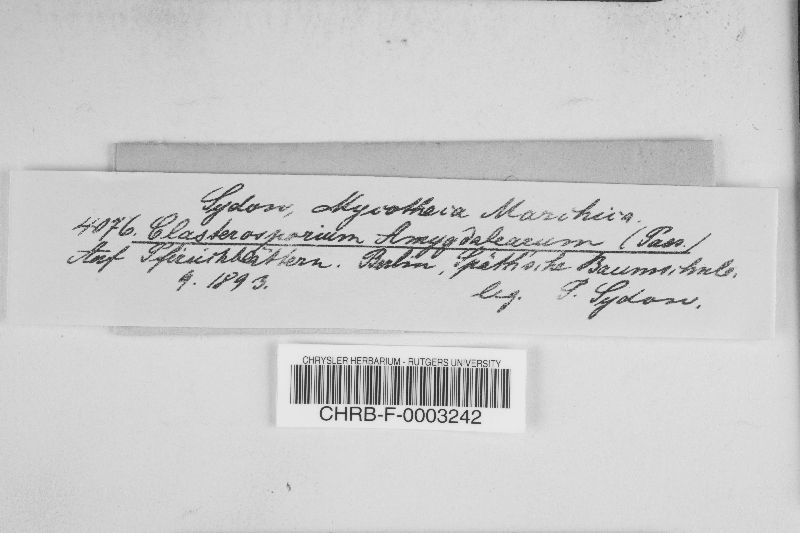 Sydow, Mycotheca Marchica.
4076. Clasterosporium Amygdalearum (Pass.)
Auf Pfirsichblättern. Berlin, Späthsche Baumschule.
9. 1893. leg. P. Sydow.
CHRYSLER HERBARIUM - RUTGERS UNIVERSITY
CHRB-F-0003242